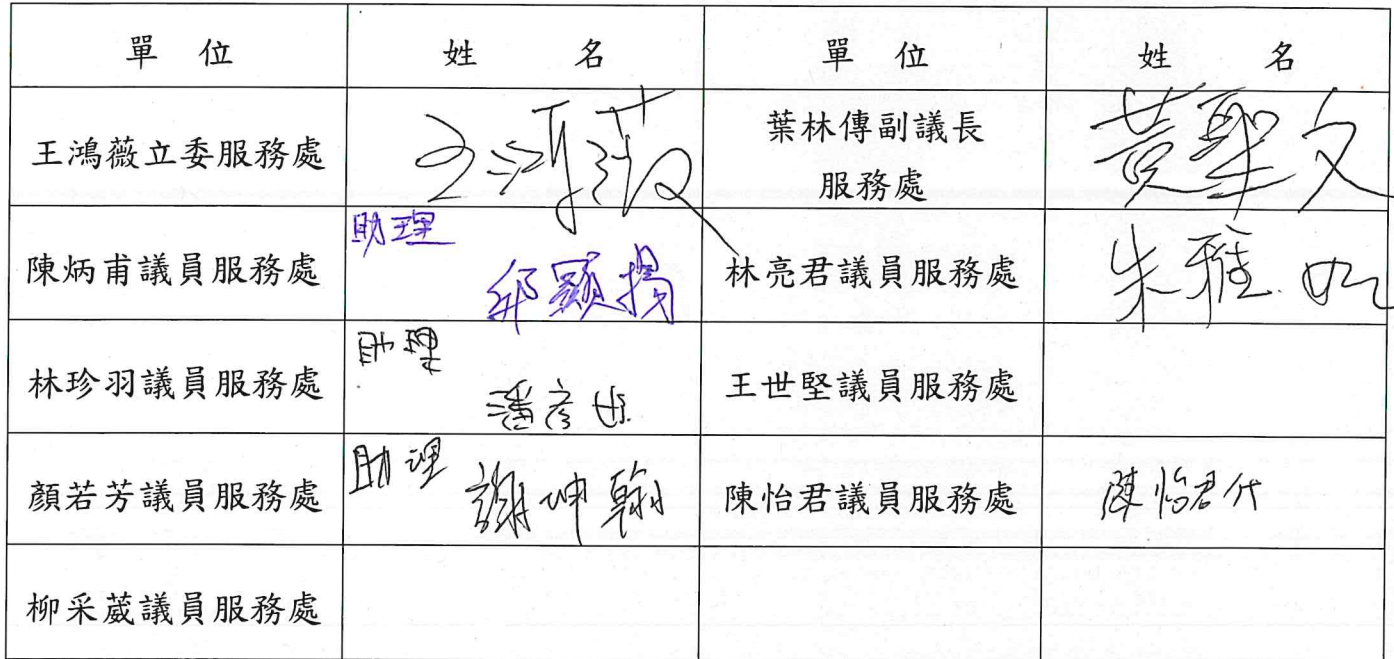 單位 姓名 單位 姓名
王鴻薇立委服務處 王鴻薇 葉林傳副議長
服務處 黃聖文
陳炳甫議員服務處 助理
邱顯揚 林亮君議員服務處 朱雅
林珍羽議員服務處 助理
潘彥 王世堅議員服務處
顏若芳議員服務處 助理 謝坤翰 陳怡君議員服務處 陳怡君代
柳采葳議員服務處